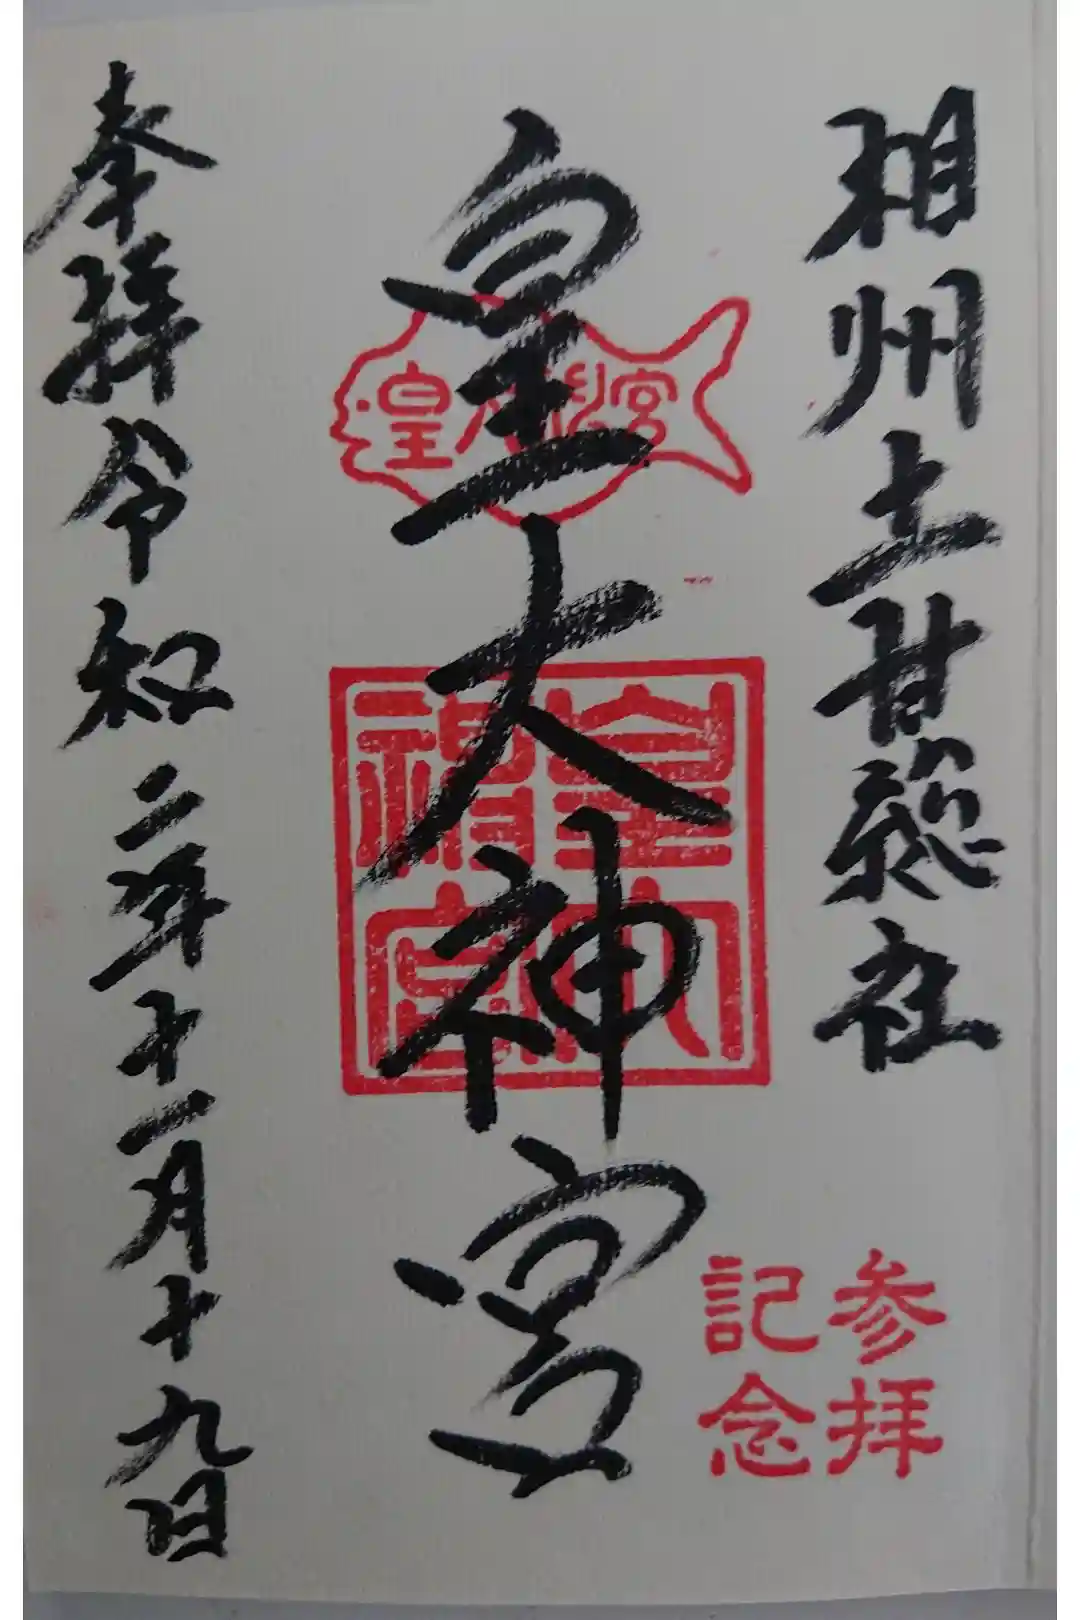 相州土甘惣社
皇大神宮
奉拝令和二年十一月十九日
皇大神宮
皇大神宮
参拝
記念